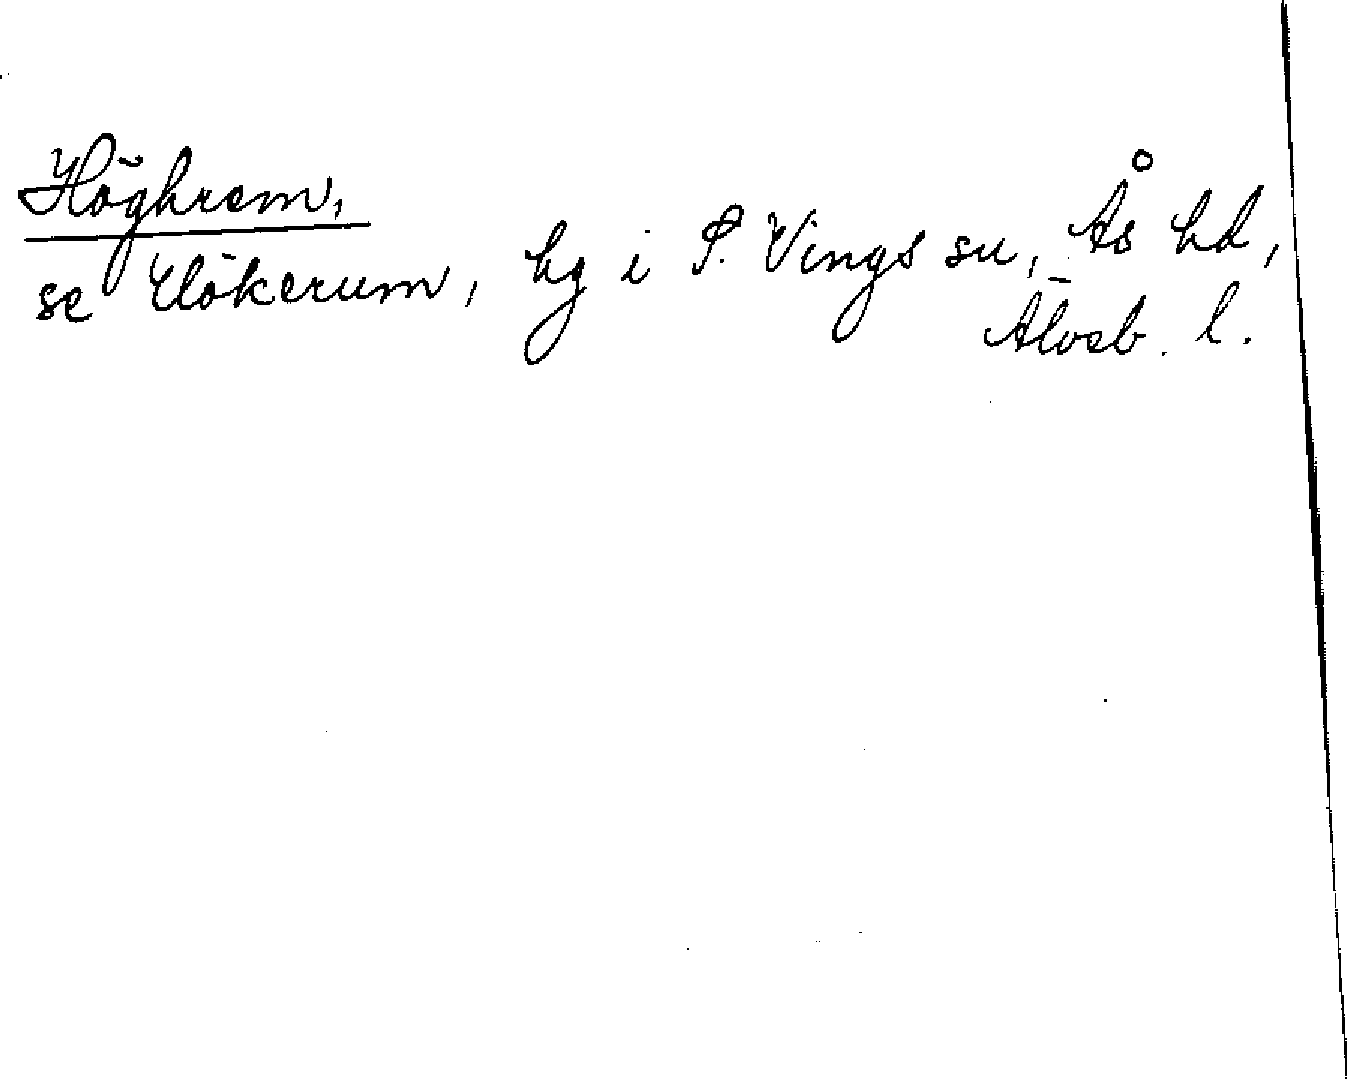 Höghrem,
se Hökerum, hg i S. Vings sn, Ås hd,
Älvsb. l.